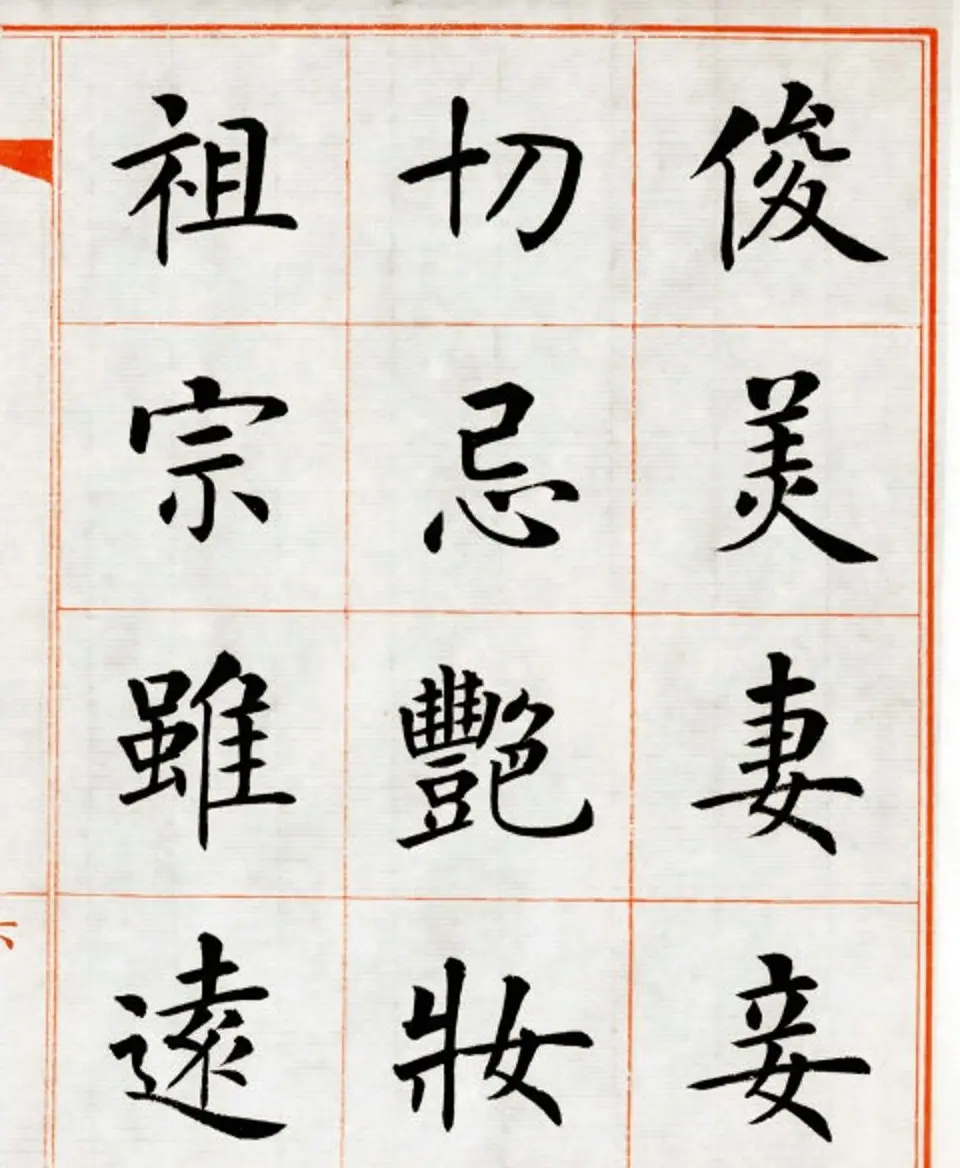 俊美妻妾
切忌艷妝
祖宗雖遠